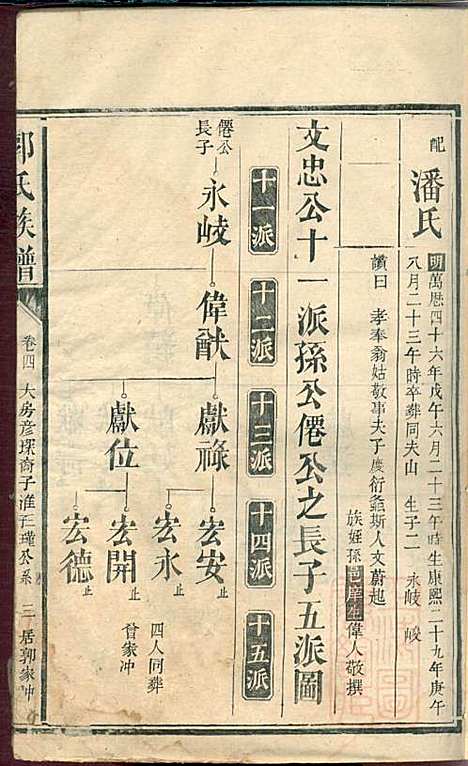 配
潘氏
明萬厯四十六年戊午六月二十三午時生康熙二十九年庚午
八月二十三午時卒葬同夫山 生子二 永岐 峻
讚曰 孝奉翁姑敬事夫子慶衍螽斯人文蔚起
族姪孫邑庠生偉人敬撰
文忠公十一派孫公僊公之長子五派圖
十一派 十二派 十三派 十四派 十五派
僊公
長子
永岐
偉猷
獻祿
獻位
宏安 止
宏永 止
宏開 止
宏德 止
四人同葬
曾家冲
郭氏族譜
卷四 大房彥琛裔子淮 瑾公系 三 居郭家冲